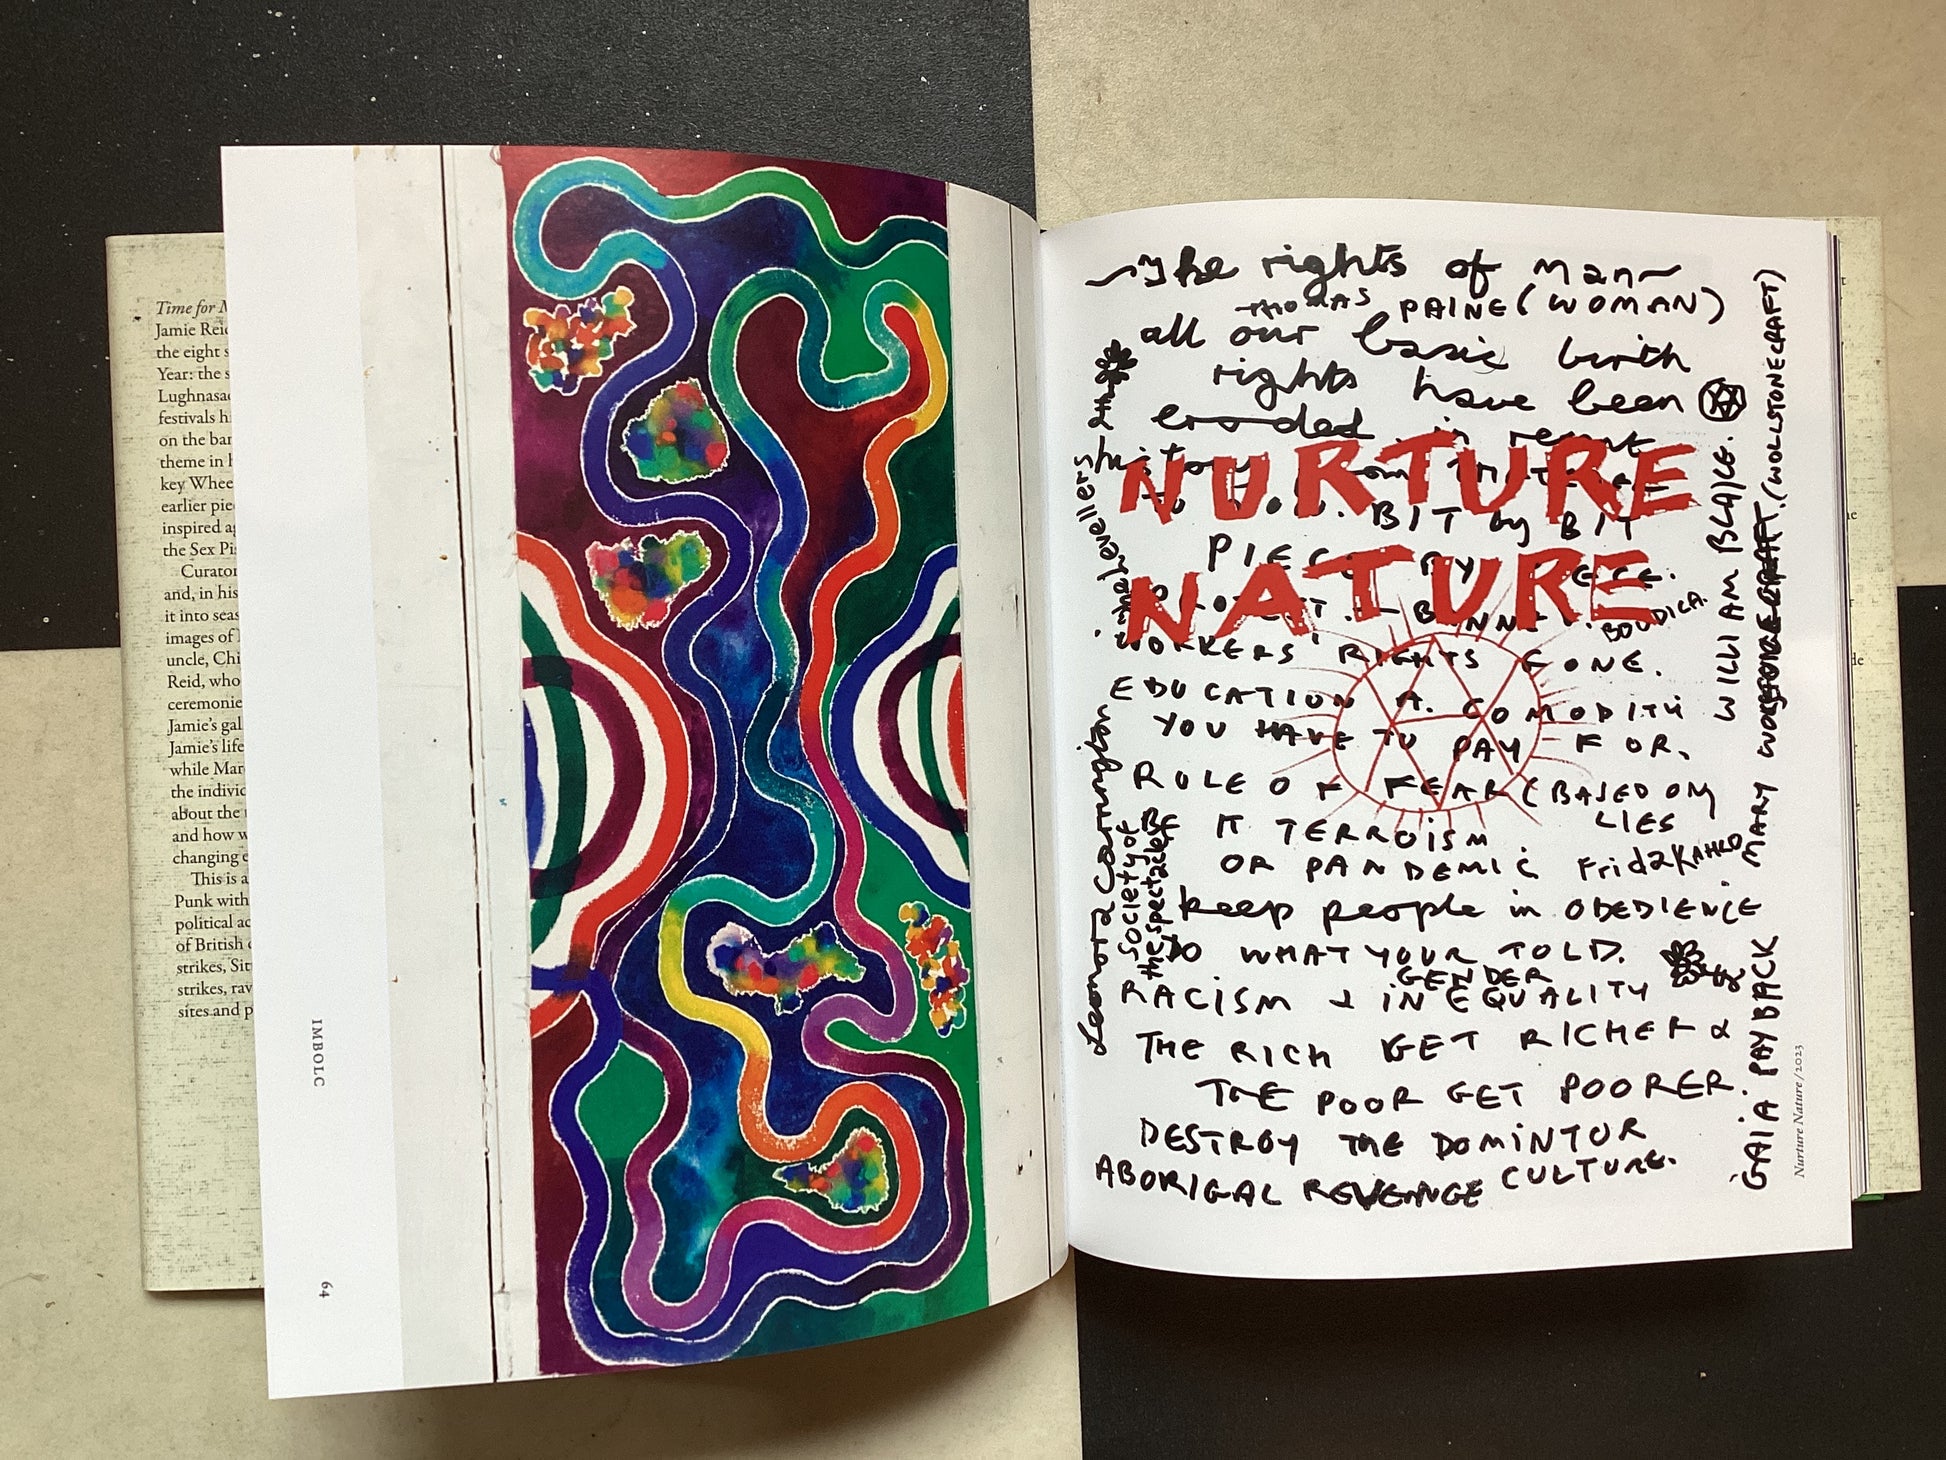 Time for M
Jamie Reid
the eight s
Year: the s
Lughnasa
festivals h
on the ban
theme in h
key Whee
earlier pie
inspired a
the Sex Pi
Curator
and, in his
it into seas
images of
uncle, Chi
Reid, who
ceremonie
Jamie's gal
Jamie's life
while Mar
the individ
about the
and how w
changing e
This is a
Punk with
political ac
of British
strikes, Sit
strikes, rav
sites and p
IMBOLC
64
The rights of man
THOMAS PAINE (WOMAN)
all our basic birth
rights have been
eroded in recent
history
TO NOW. BIT by BIT
PIECE BY PIECE.
NURTURE
NATURE
PROTEST BANNED.
BOUDICA.
WORKERS' RIGHTS GONE.
EDUCATION A COMODITY
YOU HAVE TO PAY FOR,
RULE OF FEAR (BASED ON
LIES
IT TERROISM
OR PANDEMIC
Frida KAHLO
keep people in OBEDIENCE
DO WHAT YOUR TOLD.
GENDER
RACISM & INEQUALITY
THE RICH GET RICHER &
THE POOR GET POORER.
DESTROY THE DOMINTOR
CULTURE.
ABORIGAL REVENGE
the Levellers
Leonora Carrington
Society of
the spectacle
WILLIAM BLAKE.
MARY (WOLLSTONECRAFT)
GAIA PAYBACK
Nurture Nature / 2023